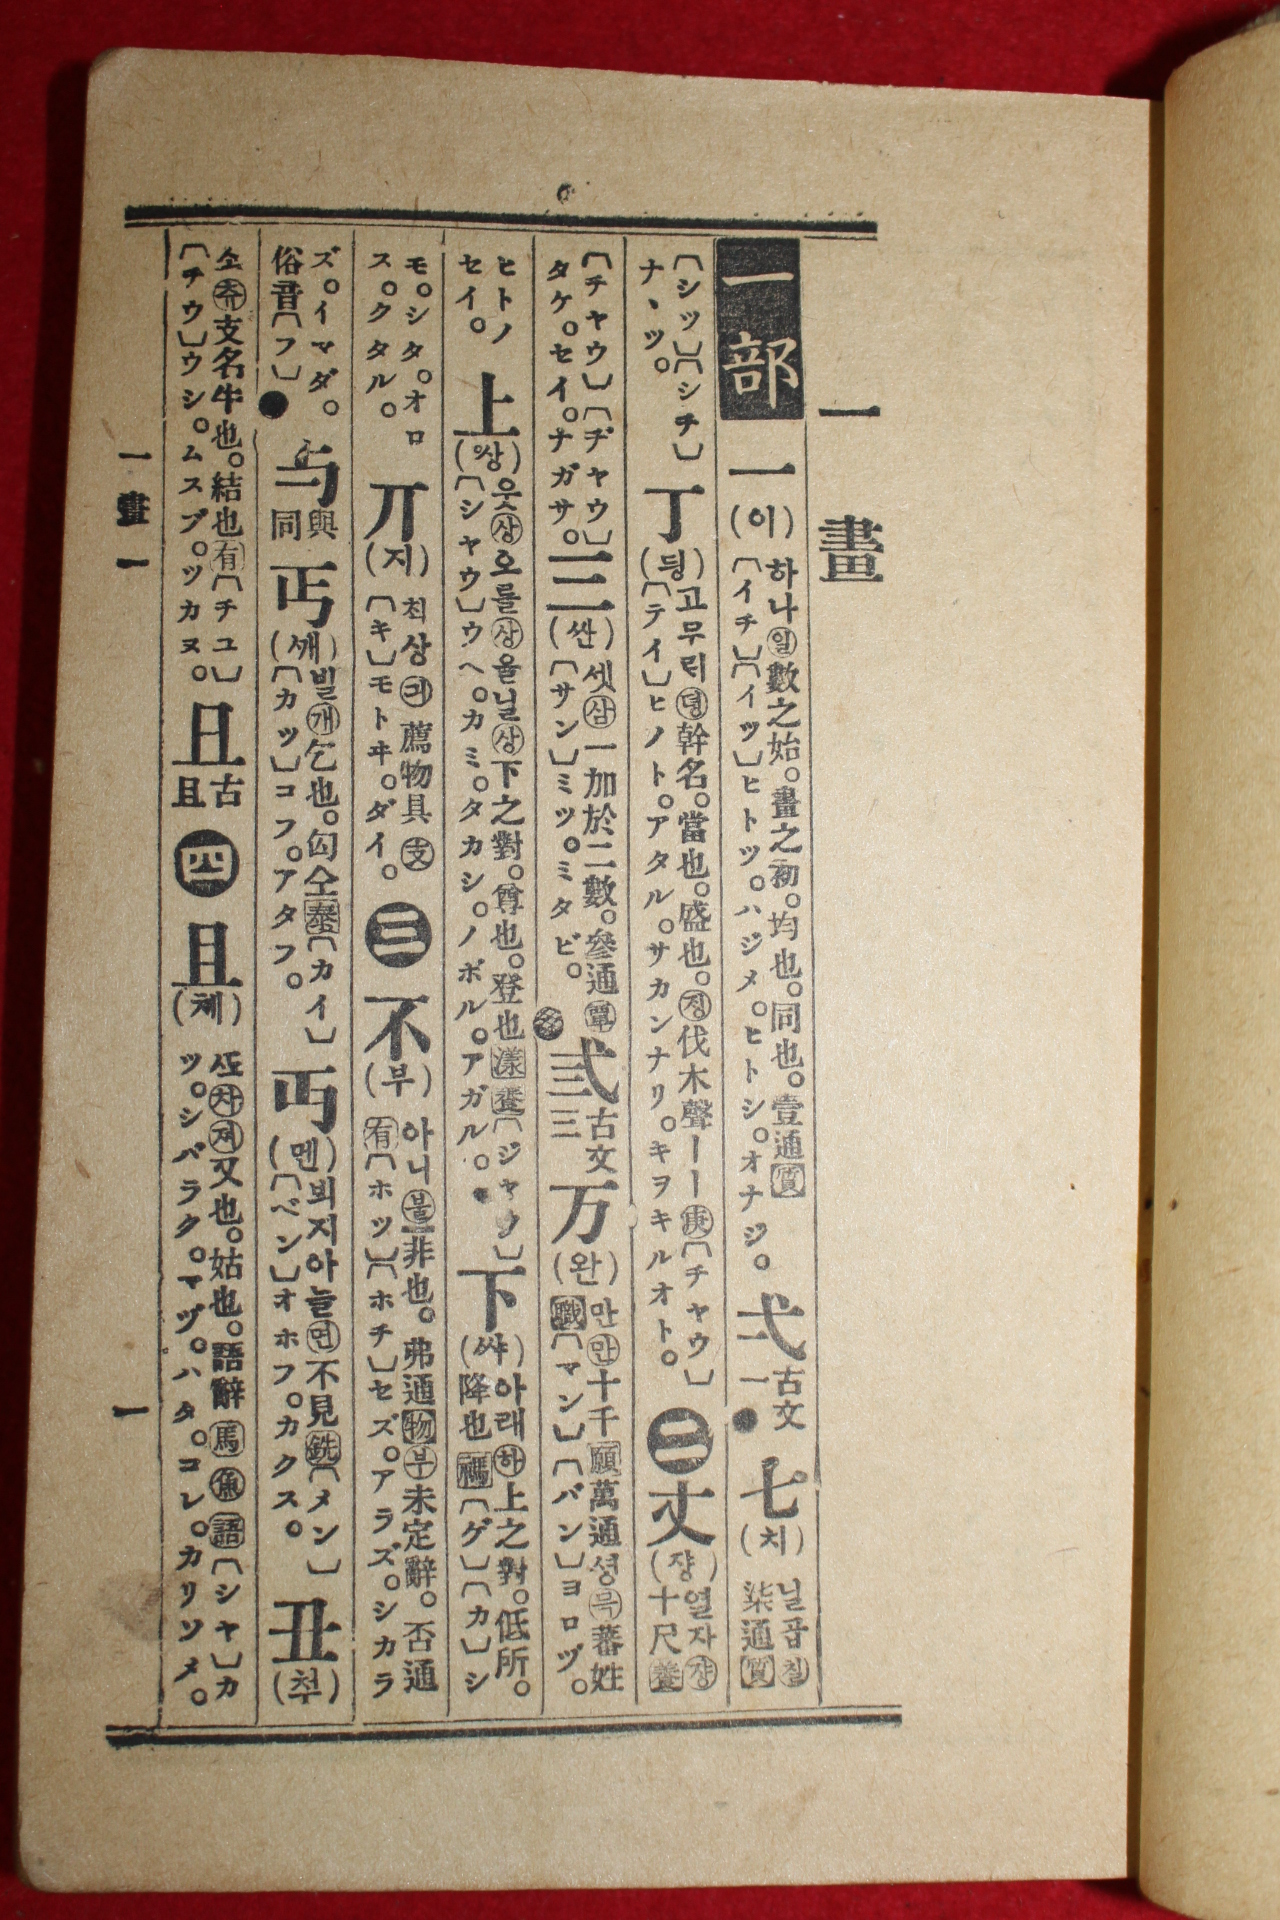 一畫
一部 一(이) 하나㊀일 數之始。畫之初。均也。同也。壹通 質 〔イチ〕〔イツ〕ヒトツ。ハジメ。ヒトシ。オナジ。 弌 古文一 ● 七(치) 닐곱 칠 柒通 質
〔シッ〕〔シチ〕ナヽツ。 丁(딍) 고무릭 뎡 幹名。當也。盛也。 졍 伐木聲丨丨 庚 〔チャウ〕〔テイ〕ヒノト。アタル。サカンナリ。キヲキルオト。 二 丈(쟝) 열자 쟝 十尺 養
〔チャウ〕〔ヂャウ〕タケ。セイ。ナガサ。 三(싼) 셋 삼 一加於二數。參通 覃 〔サン〕ミツ。ミタビ。 弎 古文三 万(완) 만 만 十千 願 萬通 셩 믁 蕃姓 職 〔マン〕〔バン〕ヨロヅ。
ヒトノセイ。 上(쌍) 웃 상 오를 상 올닐 상 下之對。尊也。登也 漾 養 〔ジャウ〕〔シャウ〕ウヘ。カミ。タカシ。ノボル。アガル。 下(쌰) 아래 하 上之對。低所。降也 禡 〔ゲ〕〔カ〕シ
モ。シタ。オロス。クタル。 丌(지) 최상 긔 薦物具 支 〔キ〕モトヰ。ダイ。 三 不(부) 아니 불 非也。弗通 物 부 未定辭。否通 有 〔ホツ〕〔ホチ〕セズ。アラズ。シカラ
ズ。イマダ。俗音〔フ〕 ● 与 與同 丐(깨) 빌 개 乞也。匃仝 泰 〔カイ〕〔カツ〕コフ。アタフ。 丏(멘) 뵈지아늘 면 不見 銑 〔メン〕〔ベン〕オホフ。カクス。 丑(척)
소 츅 支名牛也。結也 有 〔チユ〕〔チウ〕ウシ。ムスブ。ツカヌ。 且 古且 四 且(체) 또 차 져 又也。姑也。語辭 馬 魚 語 〔シャ〕カツ。シバラク。マヅ。ハタ。コレ。カリソメ。
一畫 一 一